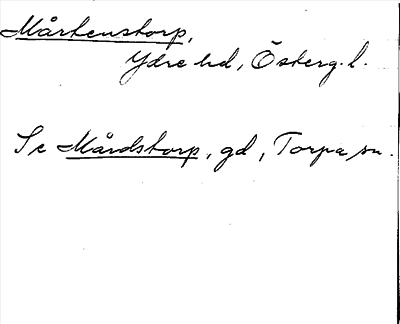 Mårtenstorp,
Ydre hd, Österg. l.
Se Mårdstorp, gd, Torpa sn.